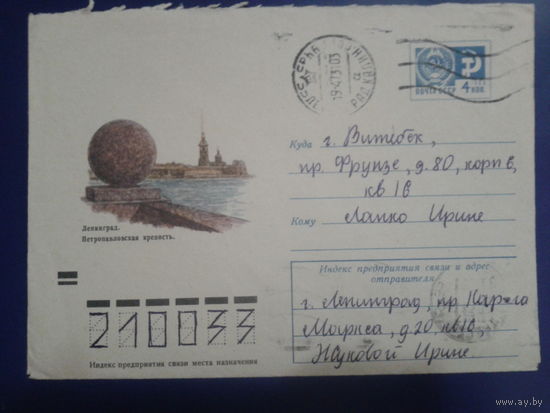 ПОЧТА СССР
4 коп.
19-4 73 1 03
Куда г. Витебск,
пр. Фрунзе, д. 80, корп в,
кв 18
Кому Лапко Ирине
Ленинград.
Петропавловская крепость.
Индекс предприятия связи и адрес
отправителя
г. Ленинград пр Карла
Маркса, д 20. кв 10,
Ирине
210033
Индекс предприятия связи места назначения
www.ay.by